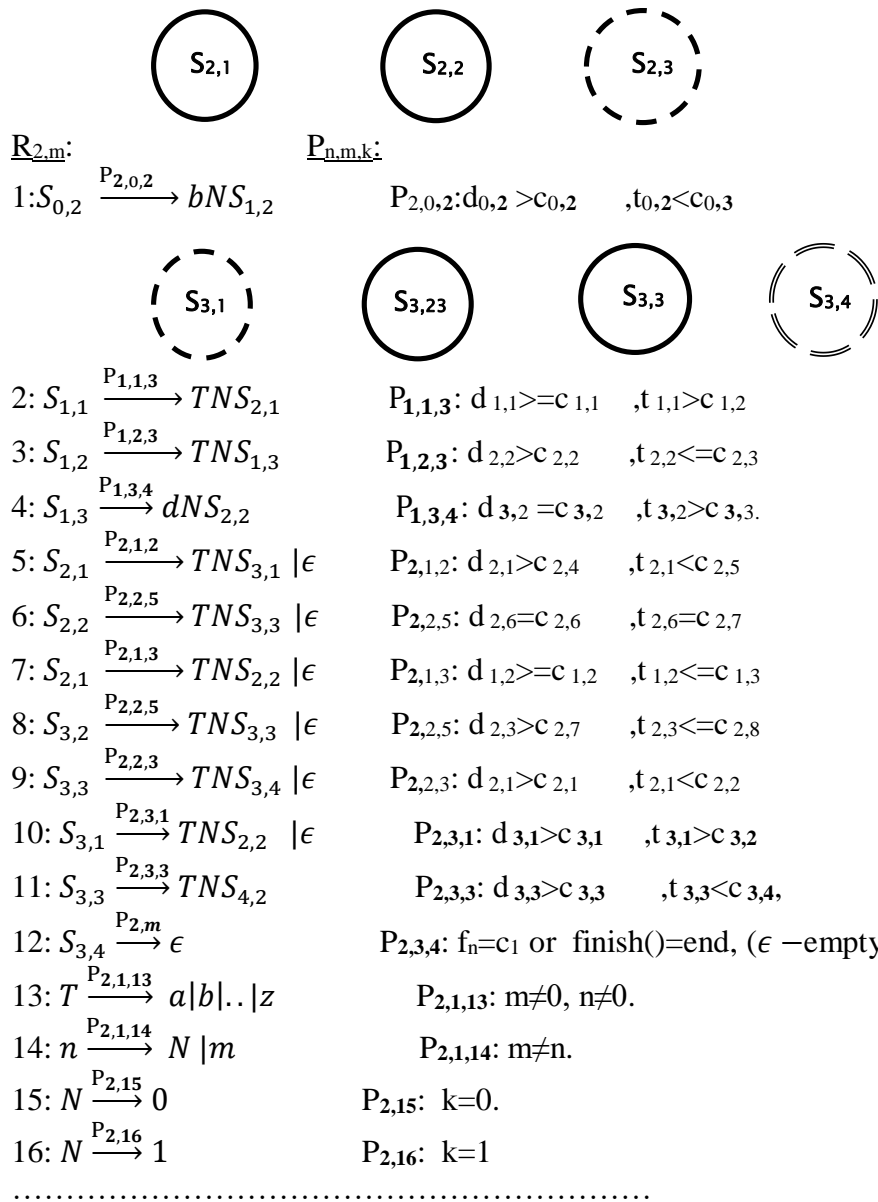 S2,1 S2,2 S2,3
R2,m: Pn,m,k:
1:S0,2 P2,0,2→ bNS1,2 P2,0,2:d0,2 >c0,2 ,t0,2<c0,3
S3,1 S3,23 S3,3 S3,4
2: S1,1 P1,1,3→ TNS2,1 P1,1,3: d 1,1>=c 1,1 ,t 1,1>c 1,2
3: S1,2 P1,2,3→ TNS1,3 P1,2,3: d 2,2>c 2,2 ,t 2,2<=c 2,3
4: S1,3 P1,3,4→ dNS2,2 P1,3,4: d 3,2 =c 3,2 ,t 3,2>c 3,3.
5: S2,1 P2,1,2→ TNS3,1 |ϵ P2,1,2: d 2,1>c 2,4 ,t 2,1<c 2,5
6: S2,2 P2,2,5→ TNS3,3 |ϵ P2,2,5: d 2,6=c 2,6 ,t 2,6=c 2,7
7: S2,1 P2,1,3→ TNS2,2 |ϵ P2,1,3: d 1,2>=c 1,2 ,t 1,2<=c 1,3
8: S3,2 P2,2,5→ TNS3,3 |ϵ P2,2,5: d 2,3>c 2,7 ,t 2,3<=c 2,8
9: S3,3 P2,2,3→ TNS3,4 |ϵ P2,2,3: d 2,1>c 2,1 ,t 2,1<c 2,2
10: S3,1 P2,3,1→ TNS2,2 |ϵ P2,3,1: d 3,1>c 3,1 ,t 3,1>c 3,2
11: S3,3 P2,3,3→ TNS4,2 P2,3,3: d 3,3>c 3,3 ,t 3,3<c 3,4,
12: S3,4 P2,m→ ϵ P2,3,4: fn=c1 or finish()=end, (ϵ −empty
13: T P2,1,13→ a|b|..|z P2,1,13: m≠0, n≠0.
14: n P2,1,14→ N |m P2,1,14: m≠n.
15: N P2,15→ 0 P2,15: k=0.
16: N P2,16→ 1 P2,16: k=1
……………………………………………………